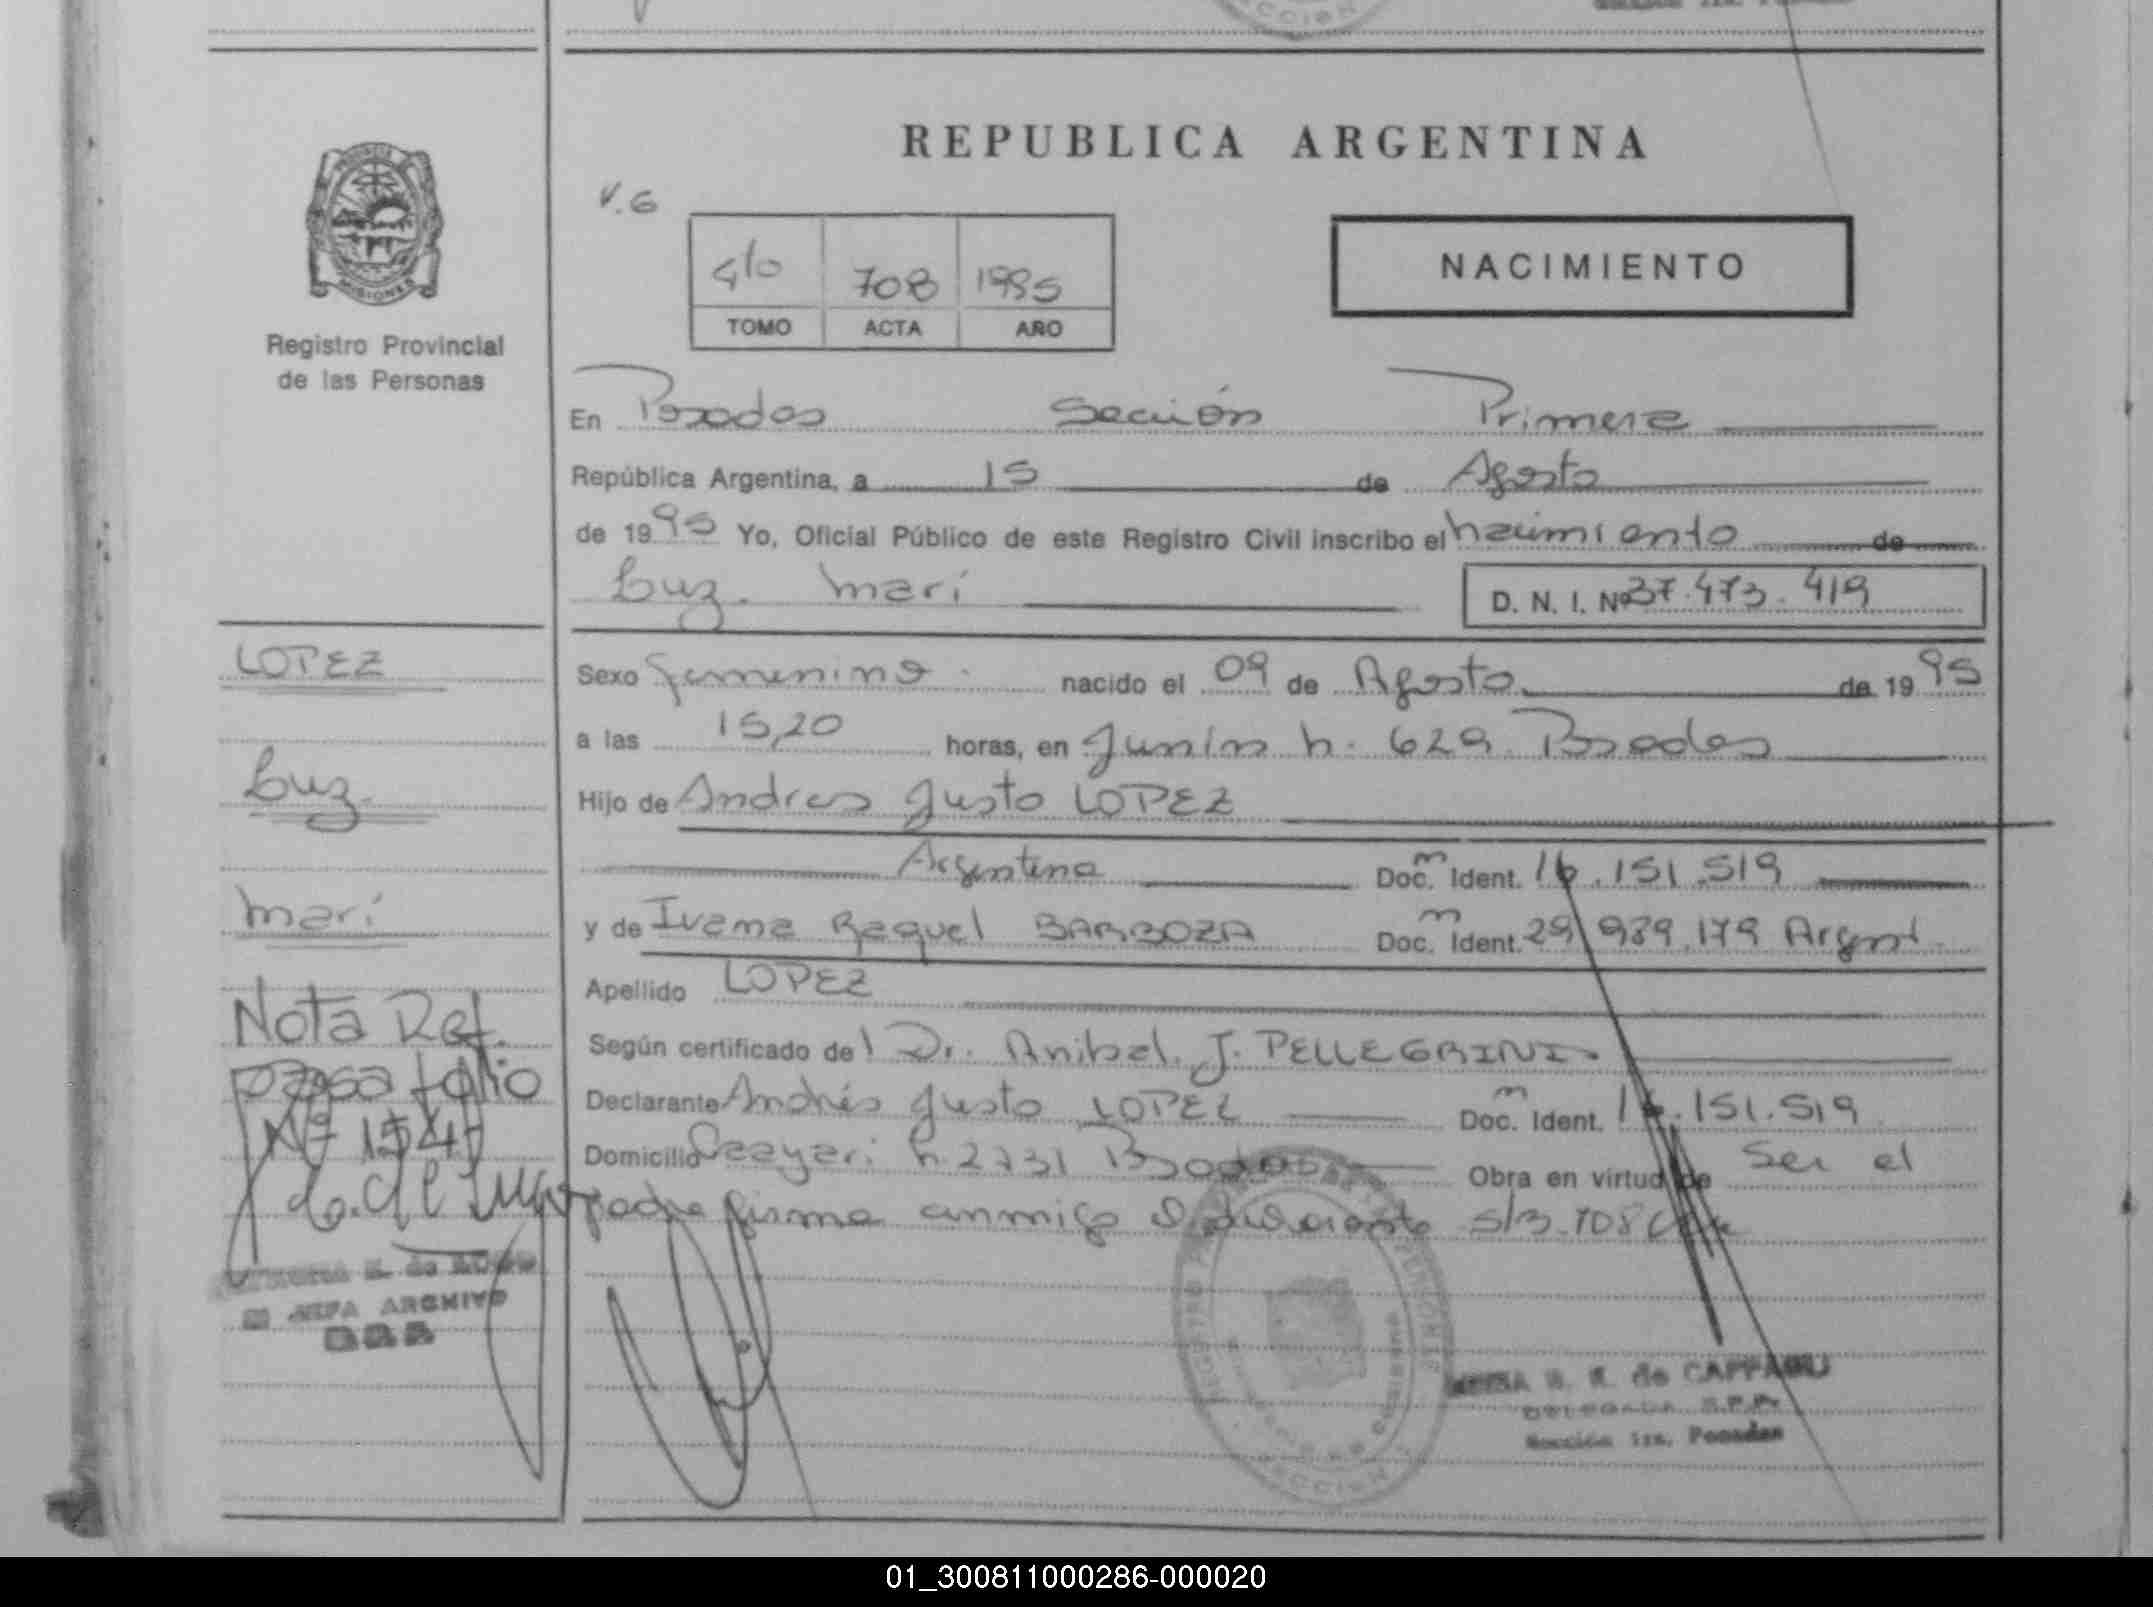 REPUBLICA ARGENTINA
V.G
4to 708 1995
TOMO ACTA AÑO
NACIMIENTO
PROVINCIA
MISIONES
Registro Provincial
de las Personas
En Posadas Sección Primera
República Argentina, a 15 de Agosto
de 1995 Yo, Oficial Público de este Registro Civil inscribo el nacimiento de
Luz Mari
D. N. I. Nº 37.473.419
LOPEZ
Luz
Mari
Sexo Femenino nacido el 09 de Agosto de 1995
a las 15,20 horas, en Junín n. 629 Posadas
Hijo de Andres Justo LOPEZ
Argentina Doc. m Ident. 16.151.519
y de Ivana Raquel BARBOZA Doc. m Ident. 29.989.179 Argent.
Apellido LOPEZ
Según certificado del Dr. Anibal J. PELLEGRINI
Declarante Andrés Justo LOPEZ Doc. m Ident. 16.151.519
Domicilio n. 2731 Posadas Obra en virtud de Ser el
padre firma conmigo
Nota Ref.
pasa folio
Nº 154
JEFA ARCHIVO
de CAPPAGLI
DELEGADA R.P.P.
Sección 1ra. Posadas
SECCION
01_300811000286-000020